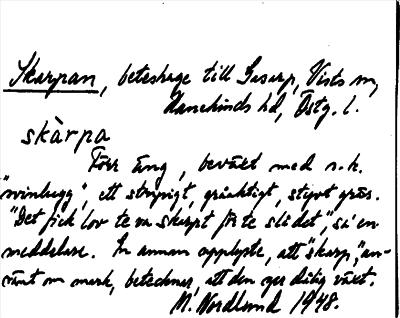 Skarpan, beteshage till Gisorp, Vists sn,
Hanekinds hd, Östg. l.
skàrpa
Förr äng, beväxt med s.k.
"svinhugg", ett strävigt, gräaktigt, styvt gräs.
"Det fick lov te va skarpt för te slå det", sa en
meddelare. En annan upplyste, att "skarp", an-
vänt om mark, betecknar, att den ger dålig växt.
M. Nordlund 1948.